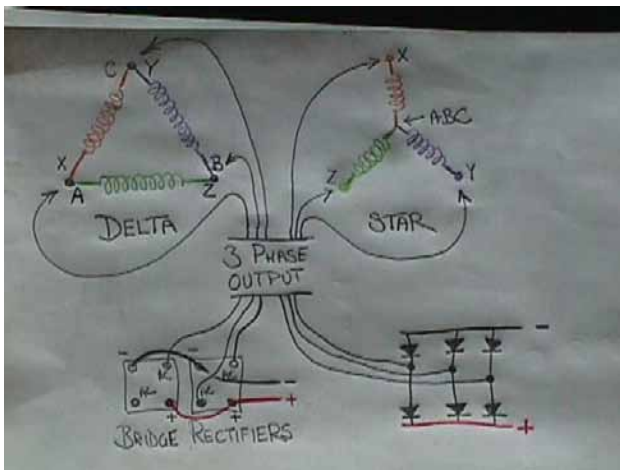 C Y
X
A
B
Z
DELTA
X
ABC
Z
Y
STAR
3 PHASE
OUTPUT
-
-
AC
AC
AC
-
+
+
+
BRIDGE RECTIFIERS
-
+